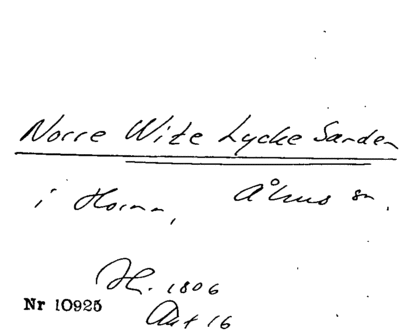 Norre Wite Lycke Sanden
i Hornn, Åhus sn.
H. 1806
Nr 10925
Akt 16